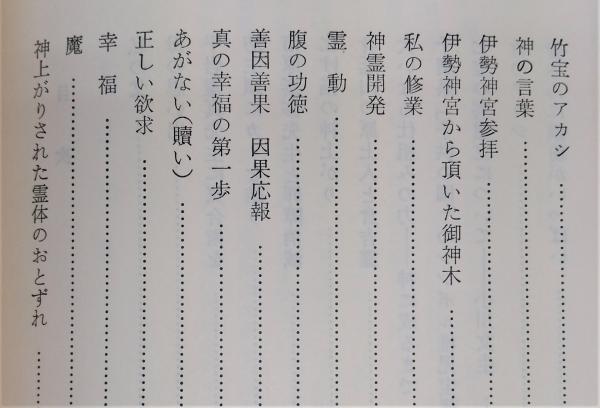 竹宝のアカシ……………
神の言葉……………
伊勢神宮参拝……………
伊勢神宮から頂いた御神木……………
私の修業……………
神霊開発……………
霊動……………
腹の功徳……………
善因善果　因果応報……………
真の幸福の第一歩……………
あがない（贖い）……………
正しい欲求……………
幸福……………
魔……………
神上がりされた霊体のおとずれ……………